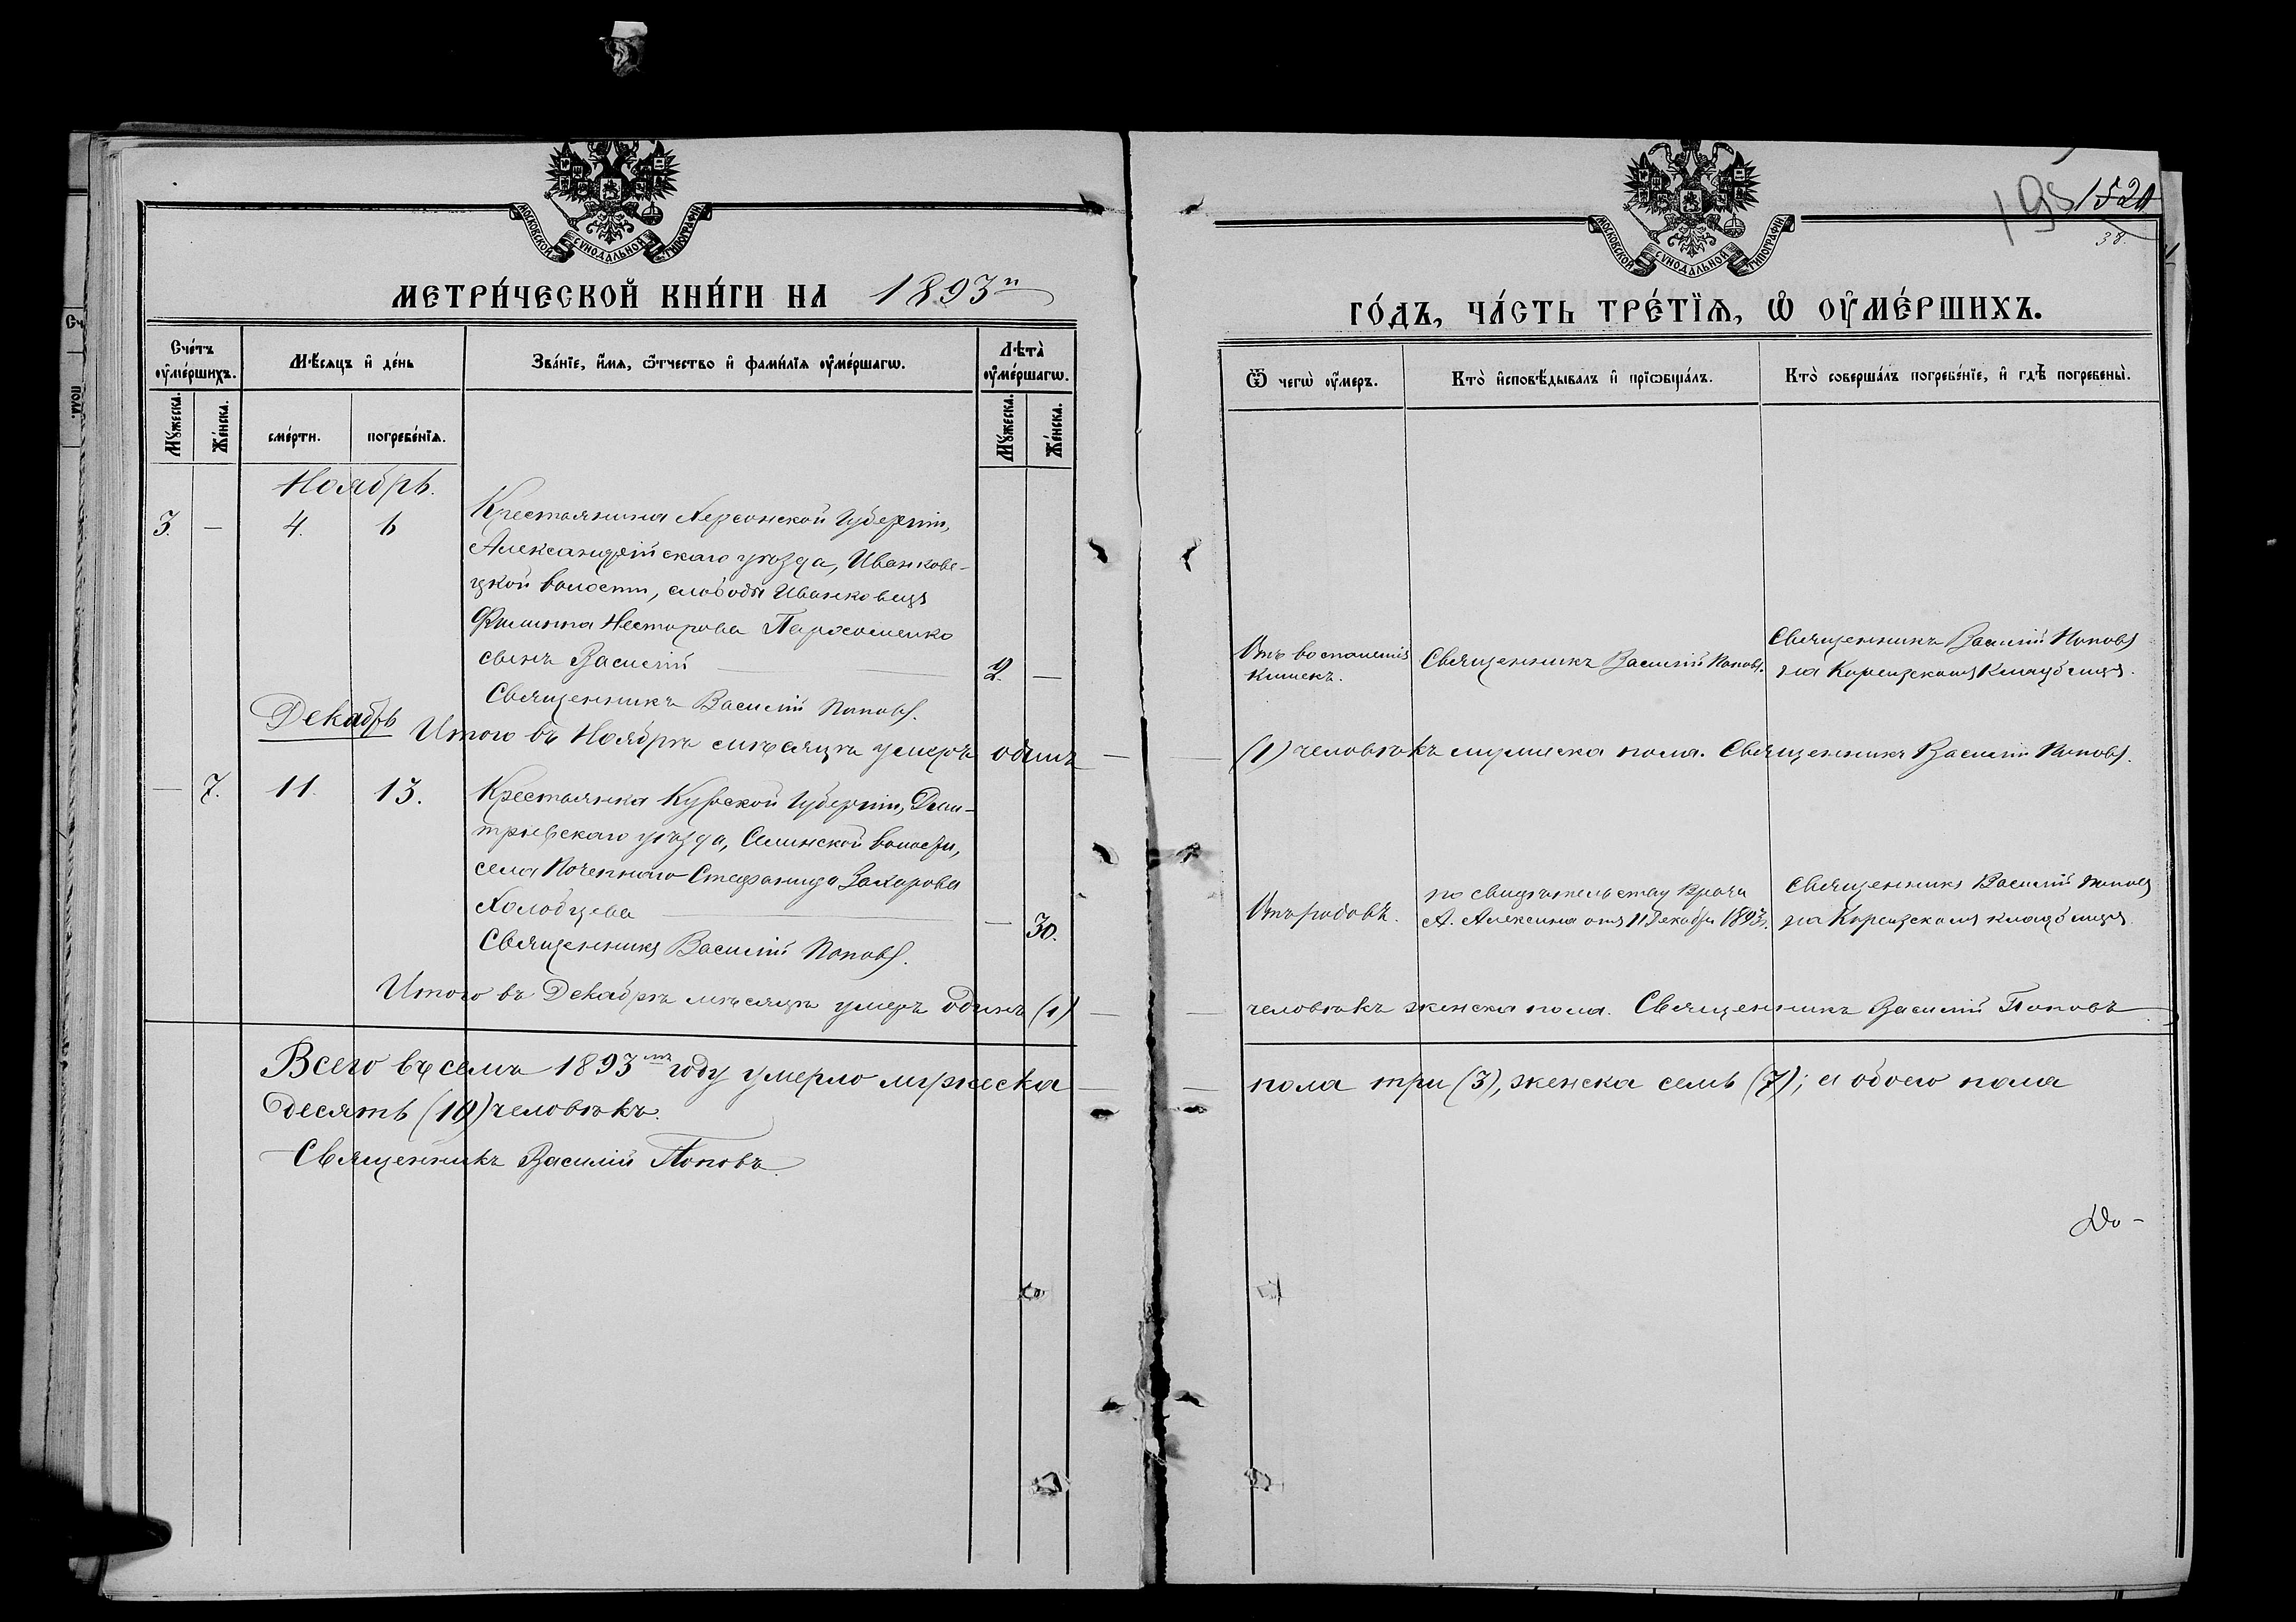 МОСКОВСКОЙ СѴНОДАЛЬНОЙ ТИПОГРАФІИ
МЕТРИ́ЧЕСКОЙ КНИ́ГИ НА 1893й
Сче́тъ ᲂу҆ме́ршихъ.
Мѣ́сяцъ и҆ де́нь
Зва́нїе, и҆́мѧ, ѻ҆́тчество и҆ фами́лїѧ ᲂу҆ме́ршагѡ.
Лѣта̀ ᲂу҆ме́ршагѡ.
Мꙋ́жеска.
Же́нска.
сме́рти.
погребе́нїѧ.
Мꙋ́жеска.
Же́нска.
Ноябрь.
3. — 4. 6
Крестьянина Херсонской Губерніи,
Александрійскаго уѣзда, Иванкове-
цкой волости, слободы Иванковецъ
Филиппа Несторова Пархоменко
сынъ Василій 2. —
Священникъ Василій Поповъ.
Декабрь
Итого въ Ноябрѣ мѣсяцѣ умеръ одинъ
— 7. 11. 13.
Крестьянка Курской Губерніи, Дми-
тріевскаго уѣзда, Селинской волости,
села Почепнаго Стефанида Захарова
Холодцева — 30.
Священникъ Василій Поповъ.
Итого въ Декабрѣ мѣсяцѣ умеръ одинъ (1)
Всего въ семъ 1893мъ году умерло мужеска
десять (10) человѣкъ.
Священникъ Василій Поповъ.
МОСКОВСКОЙ СѴНОДАЛЬНОЙ ТИПОГРАФІИ
195 1520
38.
ГО́ДЪ, ЧА́СТЬ ТРЕ́ТЇѦ, Ѽ ОУ҆МЕ́РШИХЪ.
Ѿ чегѡ̀ ᲂу҆́меръ.
Кто̀ и҆сповѣ́дывалъ и҆ прїѡбща́лъ.
Кто̀ соверша́лъ погребе́нїе, и҆ гдѣ̀ погребены̀.
Отъ воспаленія
кишекъ.
Священникъ Василій Поповъ.
Священникъ Василій Поповъ
на Кореизскомъ кладбищѣ.
(1) человѣкъ мужеска пола. Священникъ Василій Поповъ.
Отъ родовъ.
по свидѣтельству Врача
А. Алексина отъ 11 Декабря 1893г.
Священникъ Василій Поповъ
на Кореизскомъ кладбищѣ.
человѣкъ женска пола. Священникъ Василій Поповъ
пола три (3), женска семь (7); а обоего пола
До-